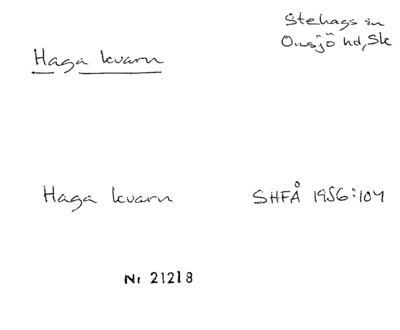 Stehags sn
Onsjö hd, Sk
Haga kvarn
Haga kvarn SHFÅ 1956:104
Nr 21218